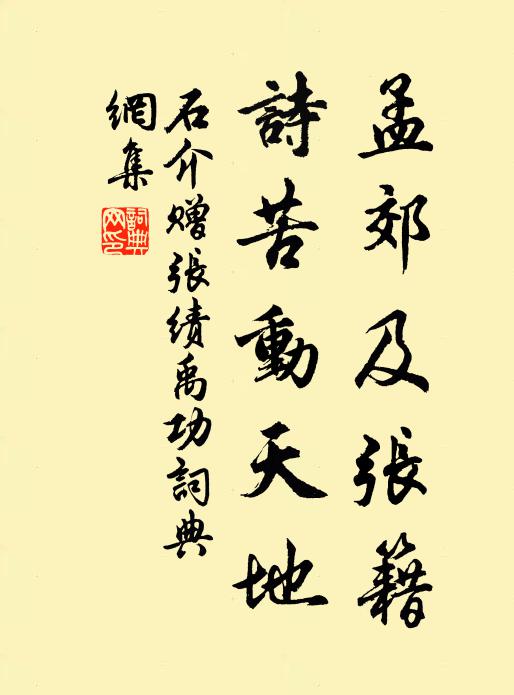 孟郊及張籍
詩苦動天地
石介赠張績禹功詞典
網集
詞典
网印